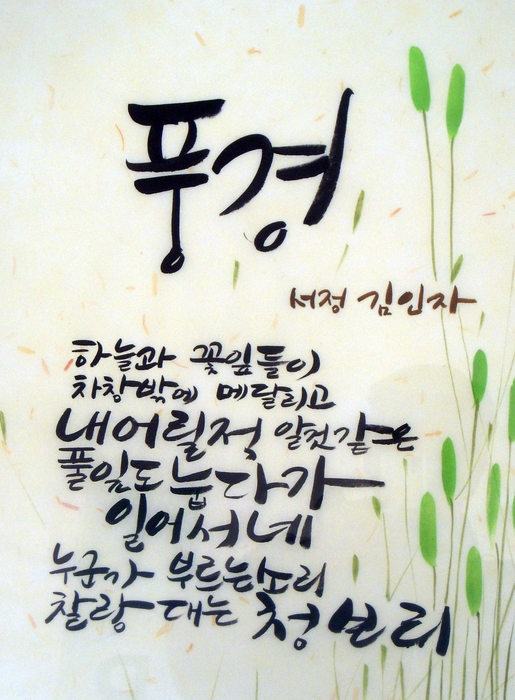 풍경
서정 김인자
하늘과 꽃잎들이
차창밖에 메달리고
내어릴적 알것같은
풀잎도 눕다가
일어서네
누군가 부르는소리
찰랑 대는 청보리